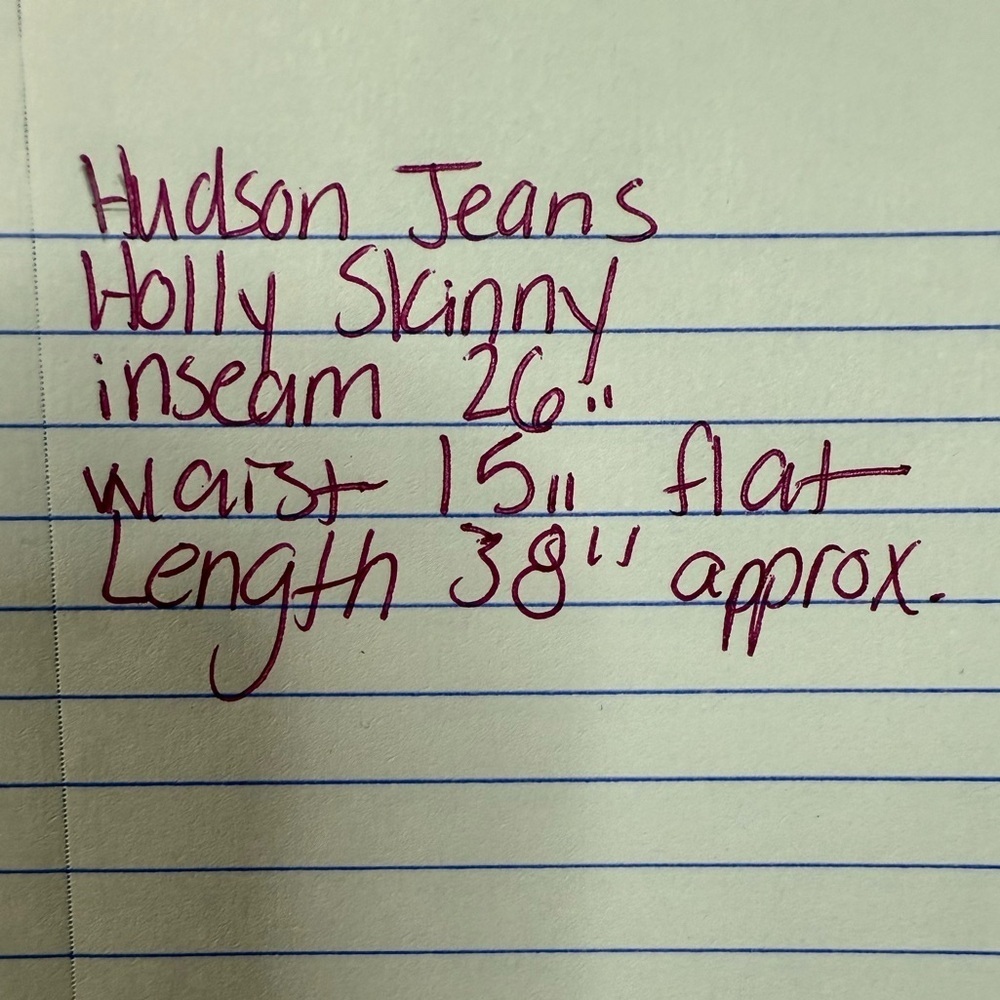 Hudson Jeans
Holly Skinny
inseam 26"
waist 15" flat
Length 38" approx.